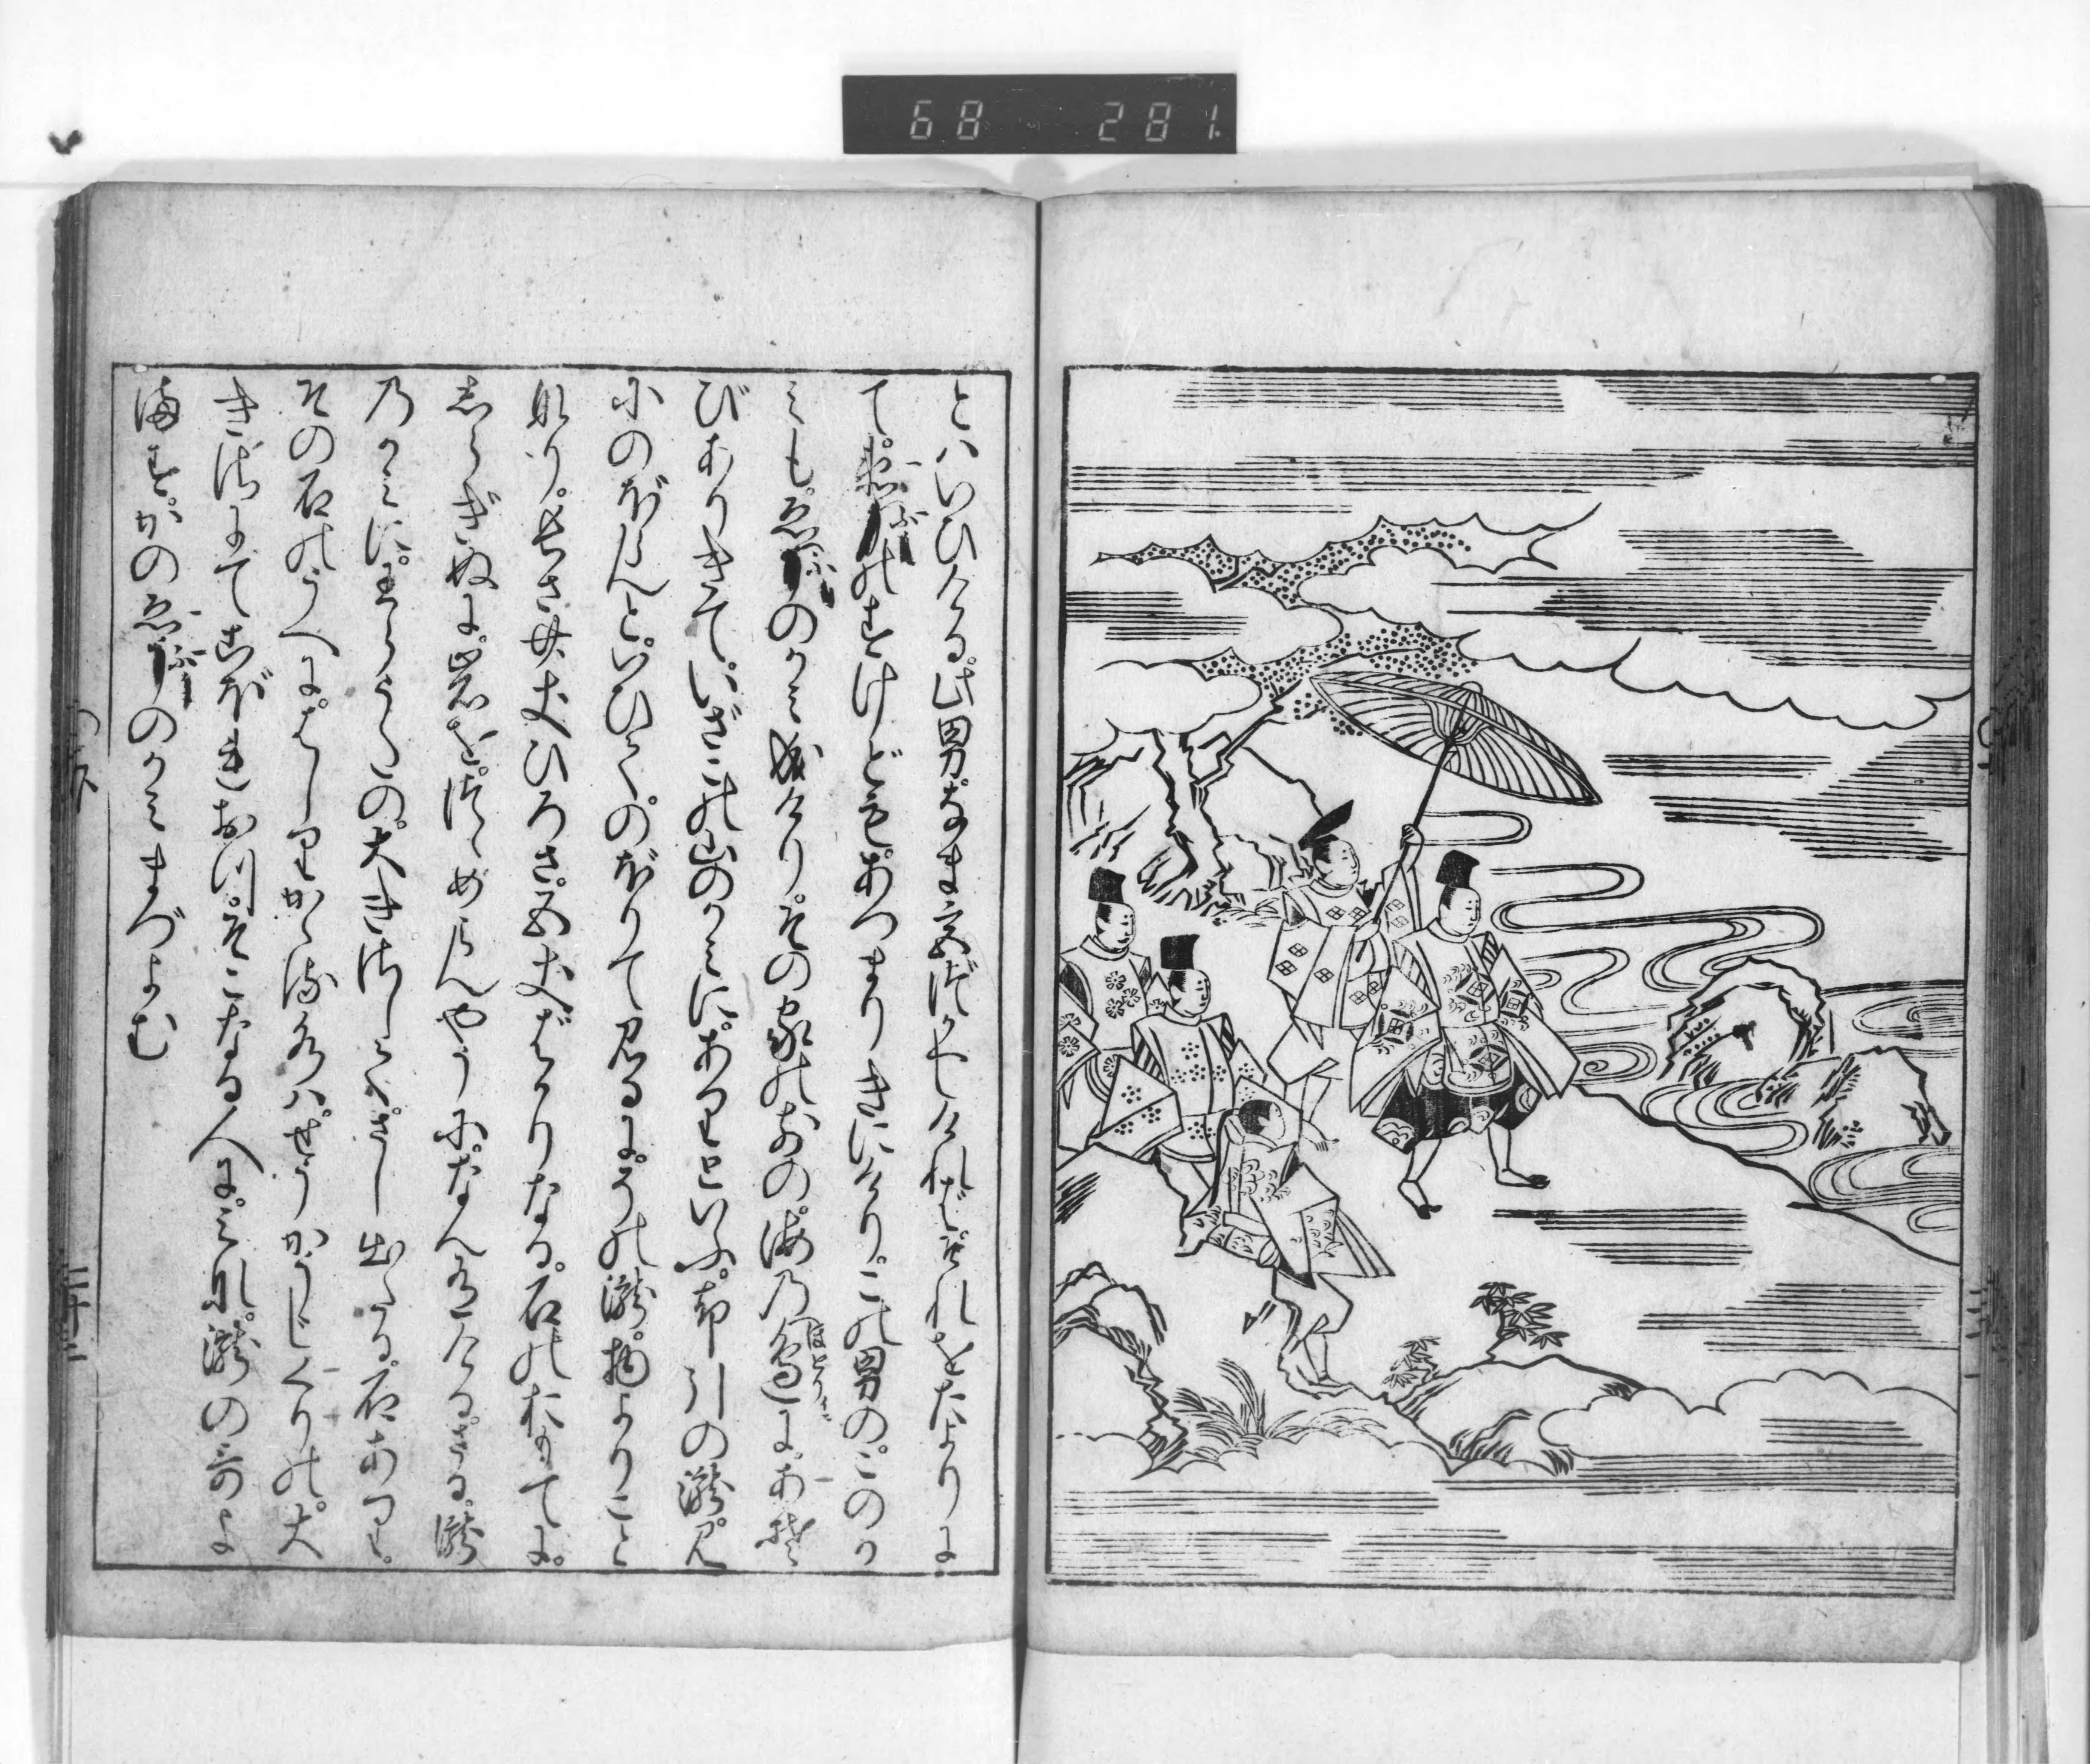 68 281
とハいひける。此男なま宮づかへしけれバ。それをたよりに
て。衛ふのすけどもあつまりきにけり。この男の。このか
ミも。ゑふのかミ成けり。その家のまへの。海乃邊に。あそ
びありきて。いざこの山のかミに。ありといふ。布引の瀧見
にのぼらんと。いひて。のぼりて見るに。その瀧。物よりこと
なり。長さ廿丈ひろさ。五丈ばかりなる。石のおもてに。
しらぎぬに。岩を。つゝめらんやうに。なん有ける。さる。瀧
乃かミに。わらうだの。大きさして。さし出たる。石あり。
その石のうへに。はしりかゝる水ハ。せうかうじくりの。大
きさにてこぼれおつ。そこなる人に。ミな。瀧の哥よ
ます。かのゑふのかミまづよむ